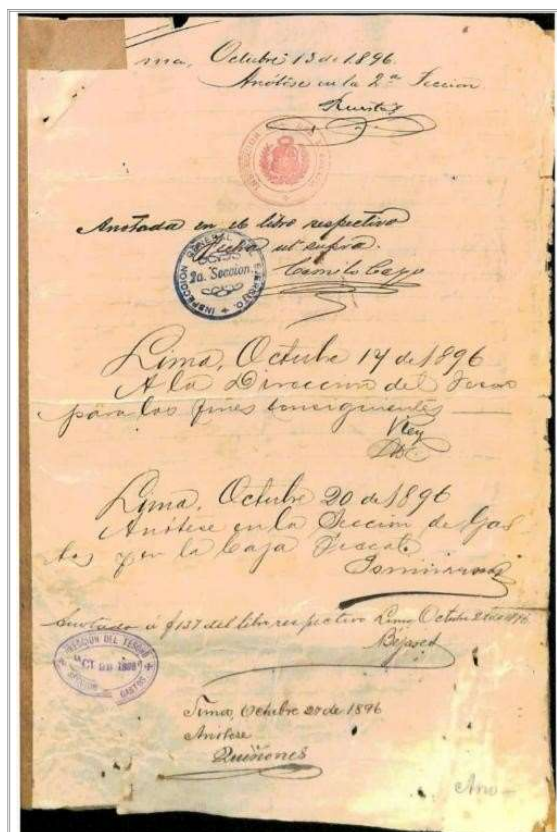 ma, Octubre 13 de 1896.
Anótese en la 2ª Sección
Anotada en el libro respectivo
Fecha ut supra.
Camilo
INSPECCION GENERAL DEL EJERCITO
2a. Seccion.
Lima, Octubre 14 de 1896
A la Direccion del Tesoro
para los fines consiguientes
Rey
Lima, Octubre 20 de 1896
Anótese en la Seccion de Gas
tos y en la Caja Fiscal
Anotado á f 137 del libro respectivo Lima Octubre 1896
DIRECCION DEL TESORO
OCT 1896
SECCION GASTOS
Lima, Octubre 27 de 1896
Anótese
Quiñones
Ano-